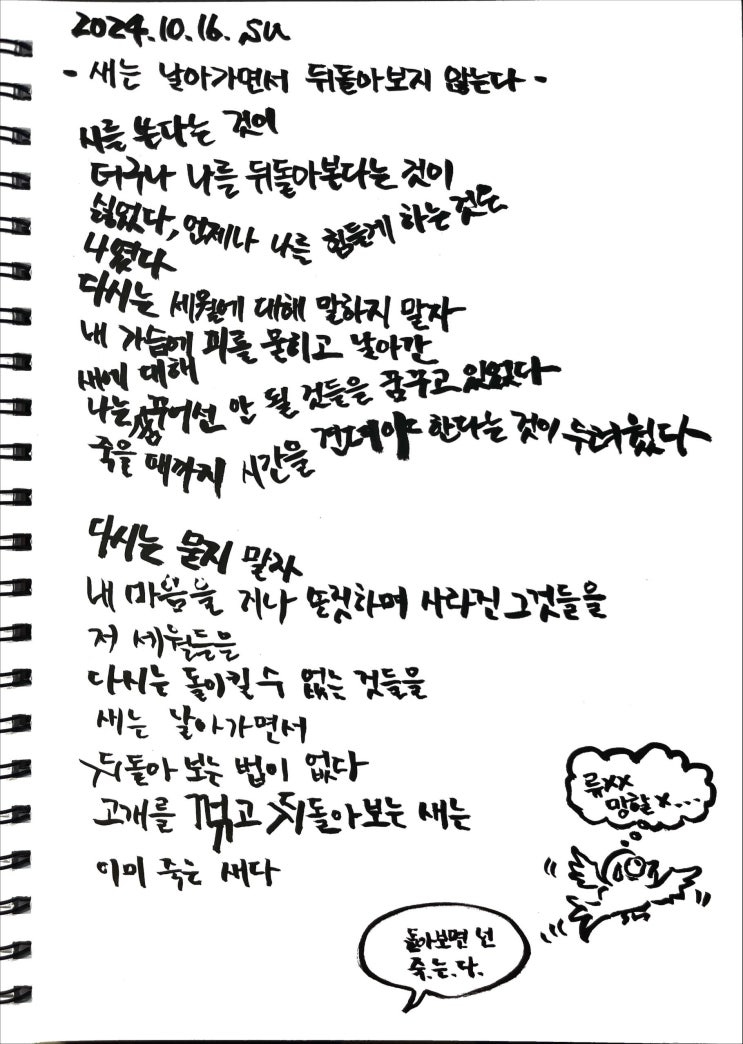 2024.10.16. su
- 새는 날아가면서 뒤돌아보지 않는다 -
시를 쓴다는 것이
더구나 나를 뒤돌아본다는 것이
싫었다, 언제나 나를 힘들게 하는 것은
나였다
다시는 세월에 대해 말하지 말자
내 가슴에 피를 묻히고 날아간
새에 대해
나는 꿈꾸어선 안 될 것들을 꿈꾸고 있었다
죽을 때까지 시간을 견뎌야 한다는 것이 두려웠다
다시는 묻지 말자
내 마음을 지나 손짓하며 사라진 그것들을
저 세월들을
다시는 돌이킬 수 없는 것들을
새는 날아가면서
뒤돌아 보는 법이 없다
고개를 꺾고 뒤돌아보는 새는
이미 죽은 새다
류xx
망할x...
돌아보면 넌
죽.는.다.